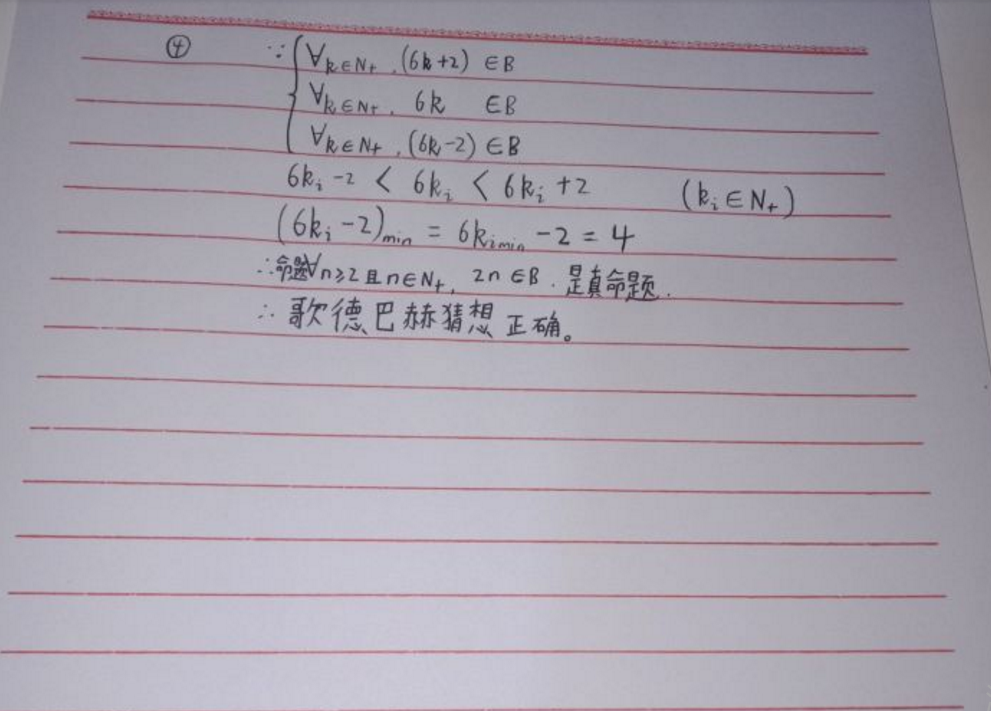 ④ ∵ { ∀k∈N+, (6k+2) ∈B
∀k∈N+, 6k ∈B
∀k∈N+, (6k-2) ∈B
6kᵢ-2 < 6kᵢ < 6kᵢ+2 (kᵢ∈N+)
(6kᵢ-2)min = 6kᵢmin -2 = 4
∴命题∀n≥2且n∈N+, 2n∈B. 是真命题.
∴歌德巴赫猜想正确。